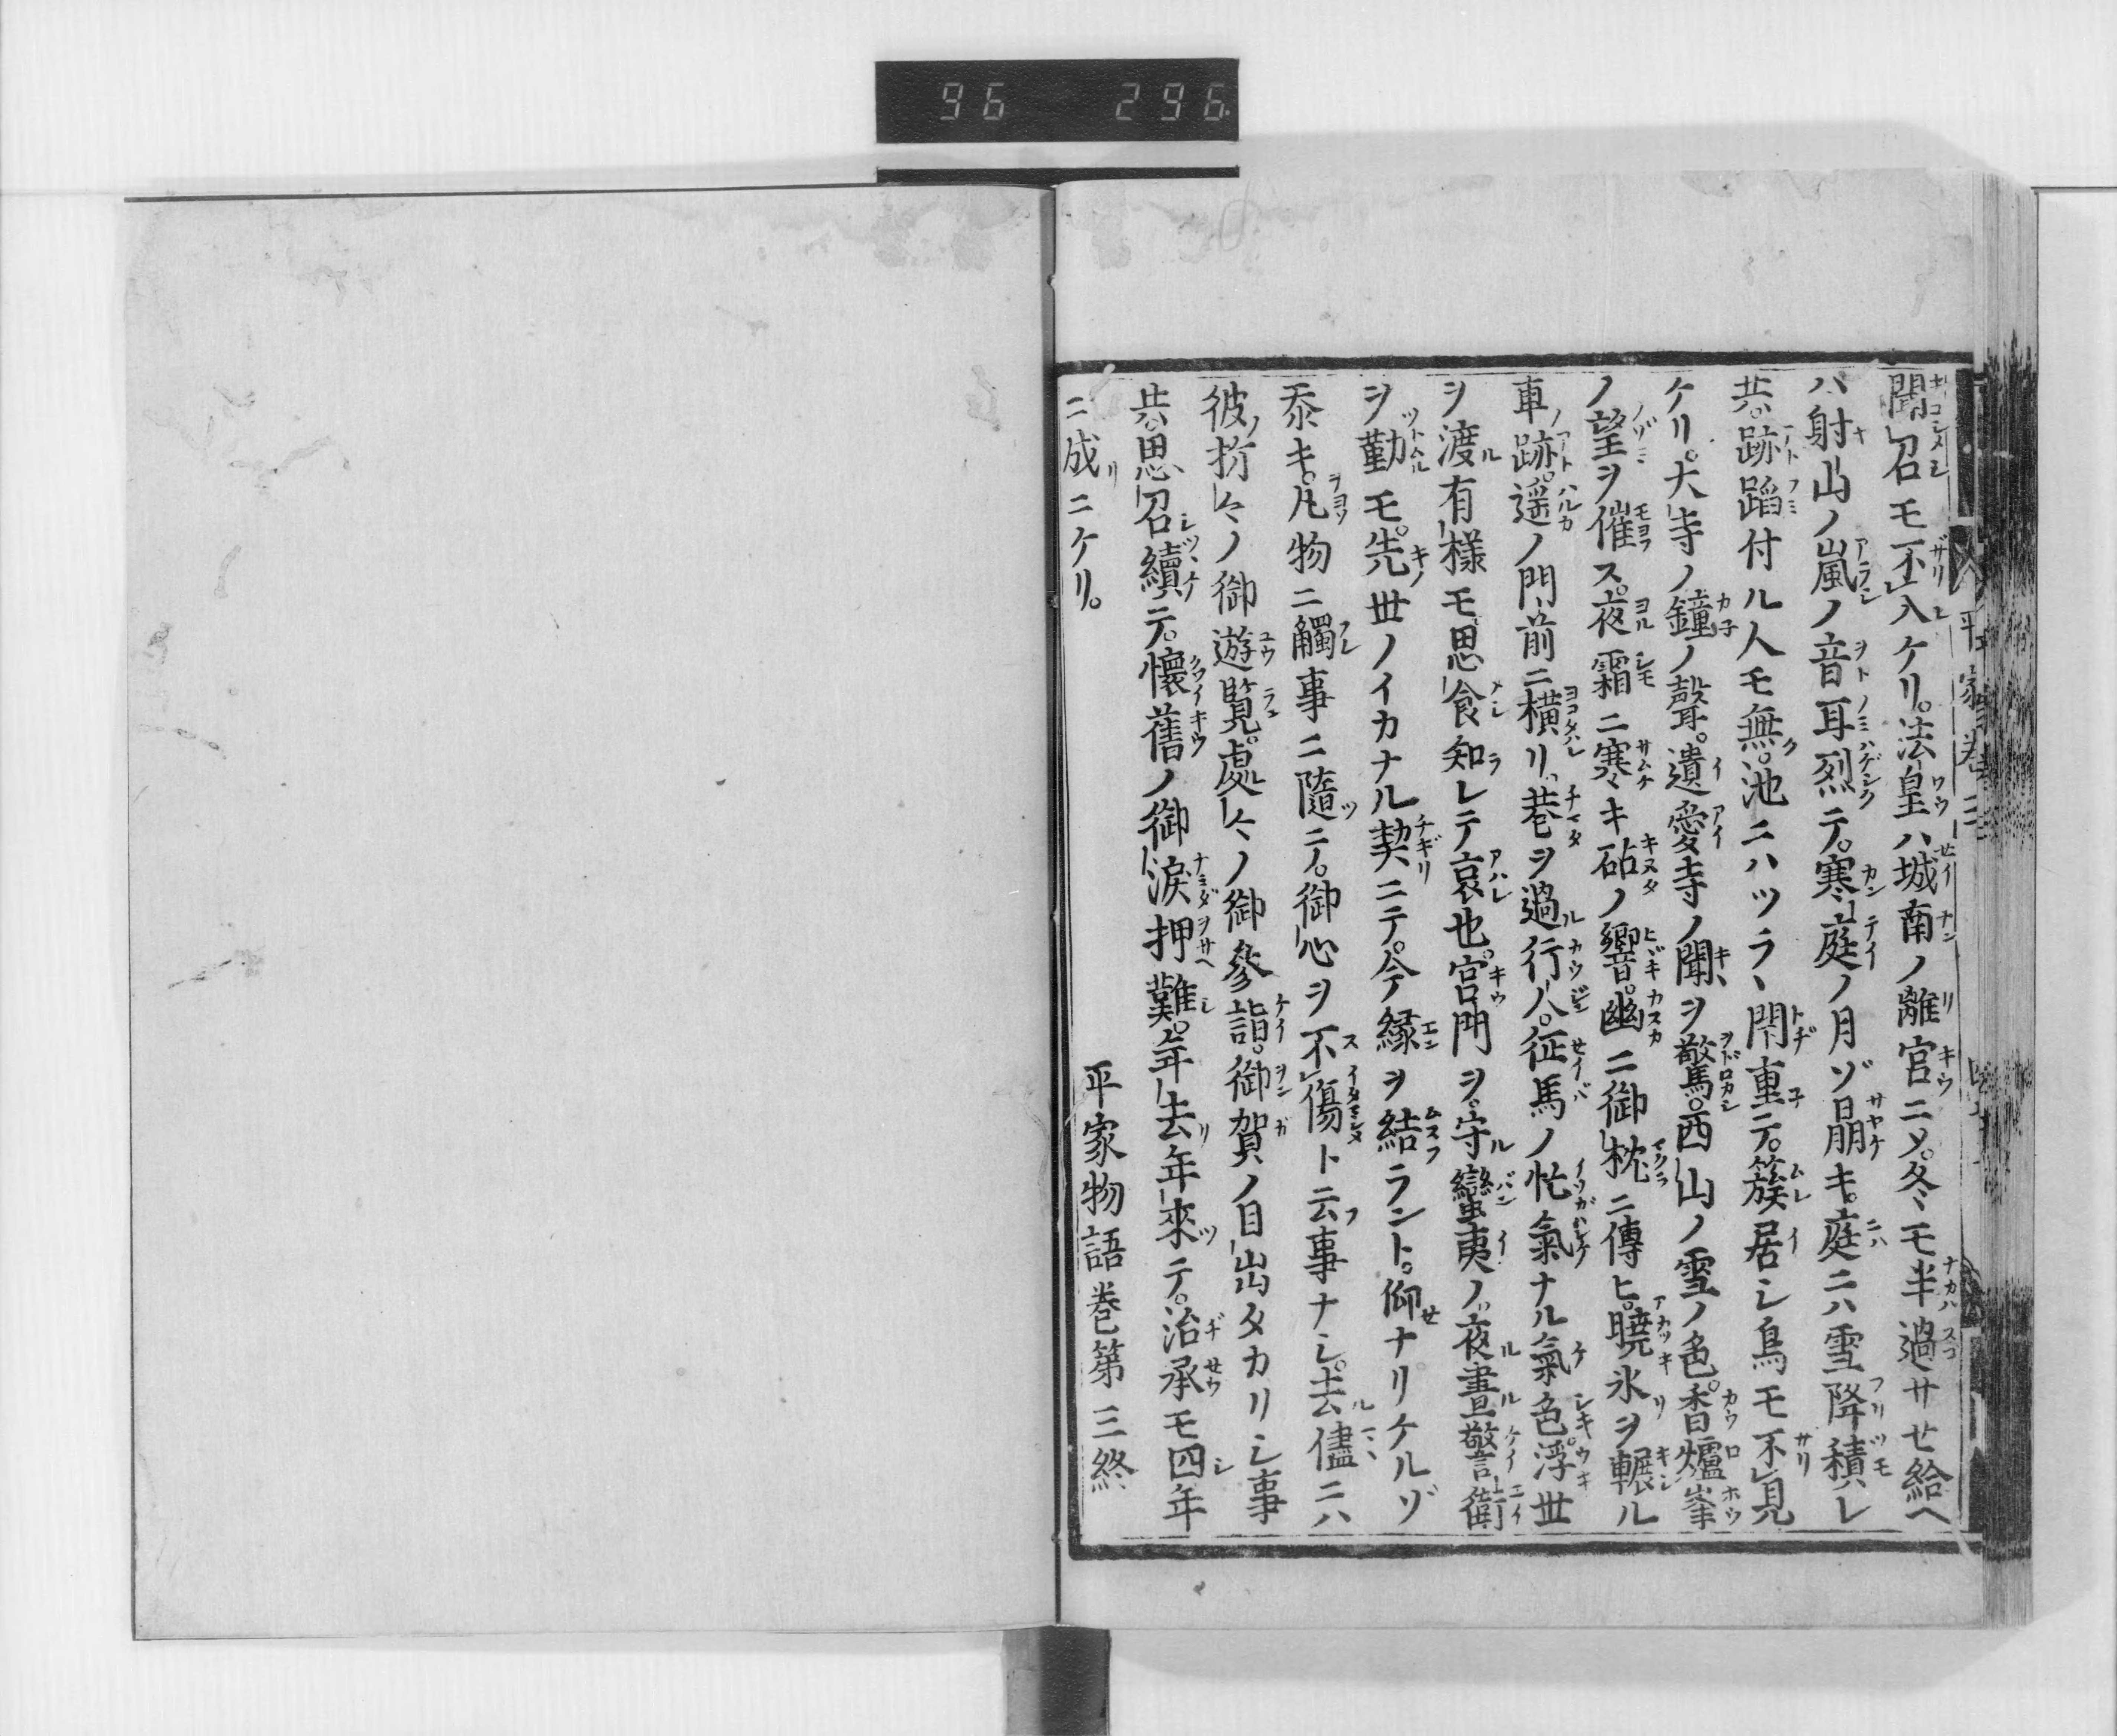 96 296
聞召モ不入ケリ。法皇ハ城南ノ離宮ニメ。冬モ半過サセ給ヘ
ハ射山ノ嵐ノ音耳烈テ。寒庭ノ月ゾ朙キ。庭ニハ雪降積レ
共。跡蹈付ル人モ無。池ニハツラヽ閇重テ。簇居シ鳥モ不見
ケリ。大寺ノ鐘ノ聲。遺愛寺ノ聞ヲ驚。西山ノ雪ノ色。香爐峯
ノ望ヲ催ス。夜霜ニ寒キ砧ノ響。幽ニ御枕ニ傳ヒ。曉氷ヲ輾ル
車跡。遥ノ門前ニ横リ。巷ヲ過行人。征馬ノ忙氣ナル氣色。浮世
ヲ渡有樣モ思食知レテ哀也。宮門ヲ。守蠻夷ノ。夜晝警衛
ヲ勤モ。先世ノイカナル契ニテ。今縁ヲ結ラント。仰ナリケルゾ
忝キ。凡物ニ觸事ニ隨ニ。御心ヲ不傷ト云事ナシ。去儘ニハ
彼折々ノ御遊覽。處々ノ御參詣。御賀ノ目出タカリシ事
共。思召續テ。懷舊ノ御淚押難。年去年來テ。治承モ四年
ニ成ニケリ。
平家物語巻第三終
平家巻三